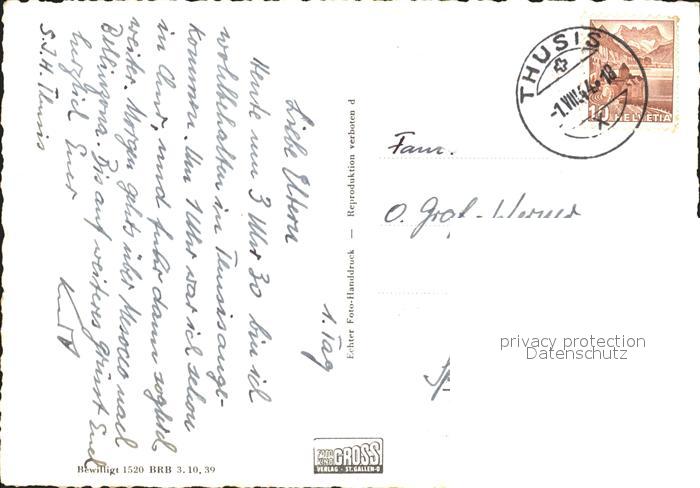 1. Tag
Liebe Eltern
Heute um 3 Uhr 30 bin ich
wohlbehalten in Thusis ange-
kommen. Um 1 Uhr war ich schon
in Chur, und fuhr dann sogleich
weiter. Morgen gehts über Mesocco nach
Bellinzona. Bis auf weiteres grüsst Euch
herzlich Euer
Kurt
S.J.H. Thusis
Bewilligt 1520 BRB 3. 10, 39
Echter Foto-Handdruck — Reproduktion verboten d
FOTO
GROSS
VERLAG - ST. GALLEN-O
THUSIS
-1.VIII.54-18
10 HELVETIA
Fam.
O. Graf-Werner
privacy protection
Datenschutz